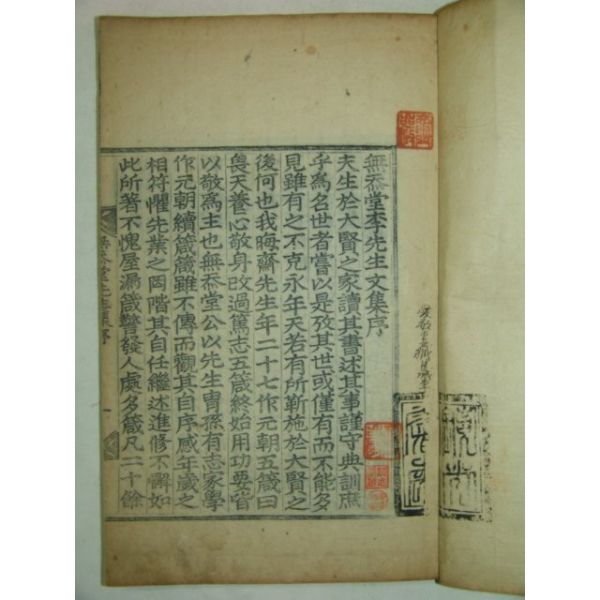 無忝堂李先生文集序
夫生於大賢之家讀其書述其事謹守典訓庶
乎爲名世者嘗以是攷其世或僅有而不能多
見雖有之不克永年天若有所靳施於大賢之
後何也我晦齋先生年二十七作元朝五箴曰
畏天養心敬身改過篤志五箴終始用功要皆
以敬爲主也無忝堂公以先生冑孫有志家學
作元朝續箴箴雖不傳而觀其自序感年歲之
相符懼先業之罔階其自任繼述進修不懈如
此所著不愧屋漏箴警發人處多箴凡二十餘
無忝堂先生文集序
一